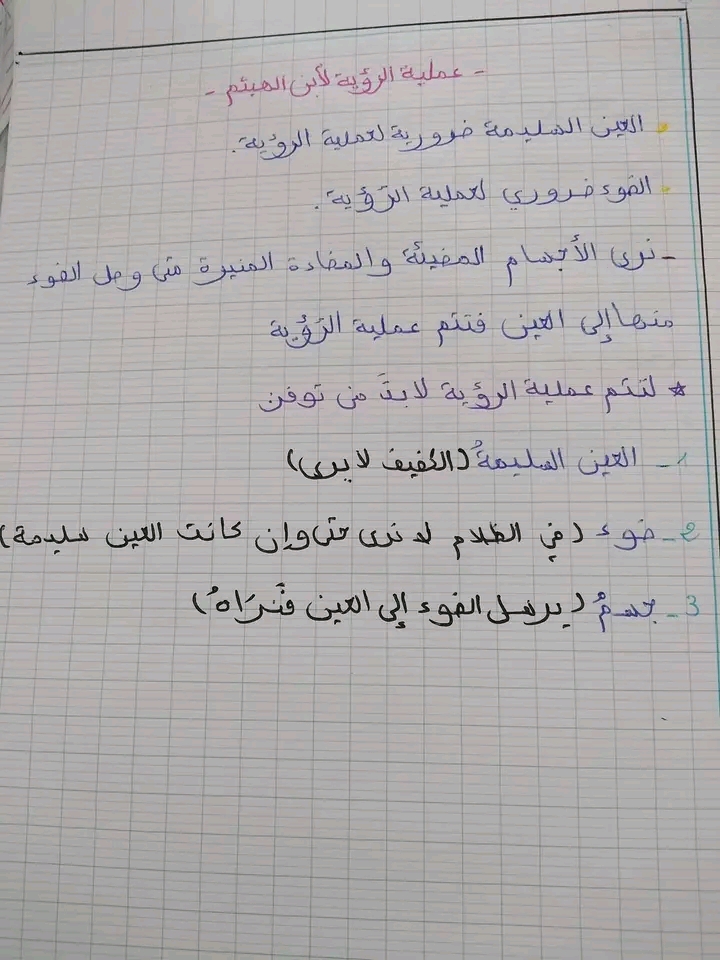 - عملية الرؤية لأبن الهيثم -
العين السليمة ضرورية لعملية الرؤية.
الضوء ضروري لعملية الرّؤية.
- نرى الأجسام المضيئة والمضاءة المنيرة متى وصل الضوء
منها إلى العين فتتم عملية الرّؤية
* لتتم عملية الرؤية لابدّ من توفر
1- العين السليمةُ (الكفيف لا يرى)
2- ضوء (في الظلام لا نرى حتى وإن كانت العين سليمة)
3- جسمٌ (يرسل الضوء إلى العين فَنَرَاهُ)